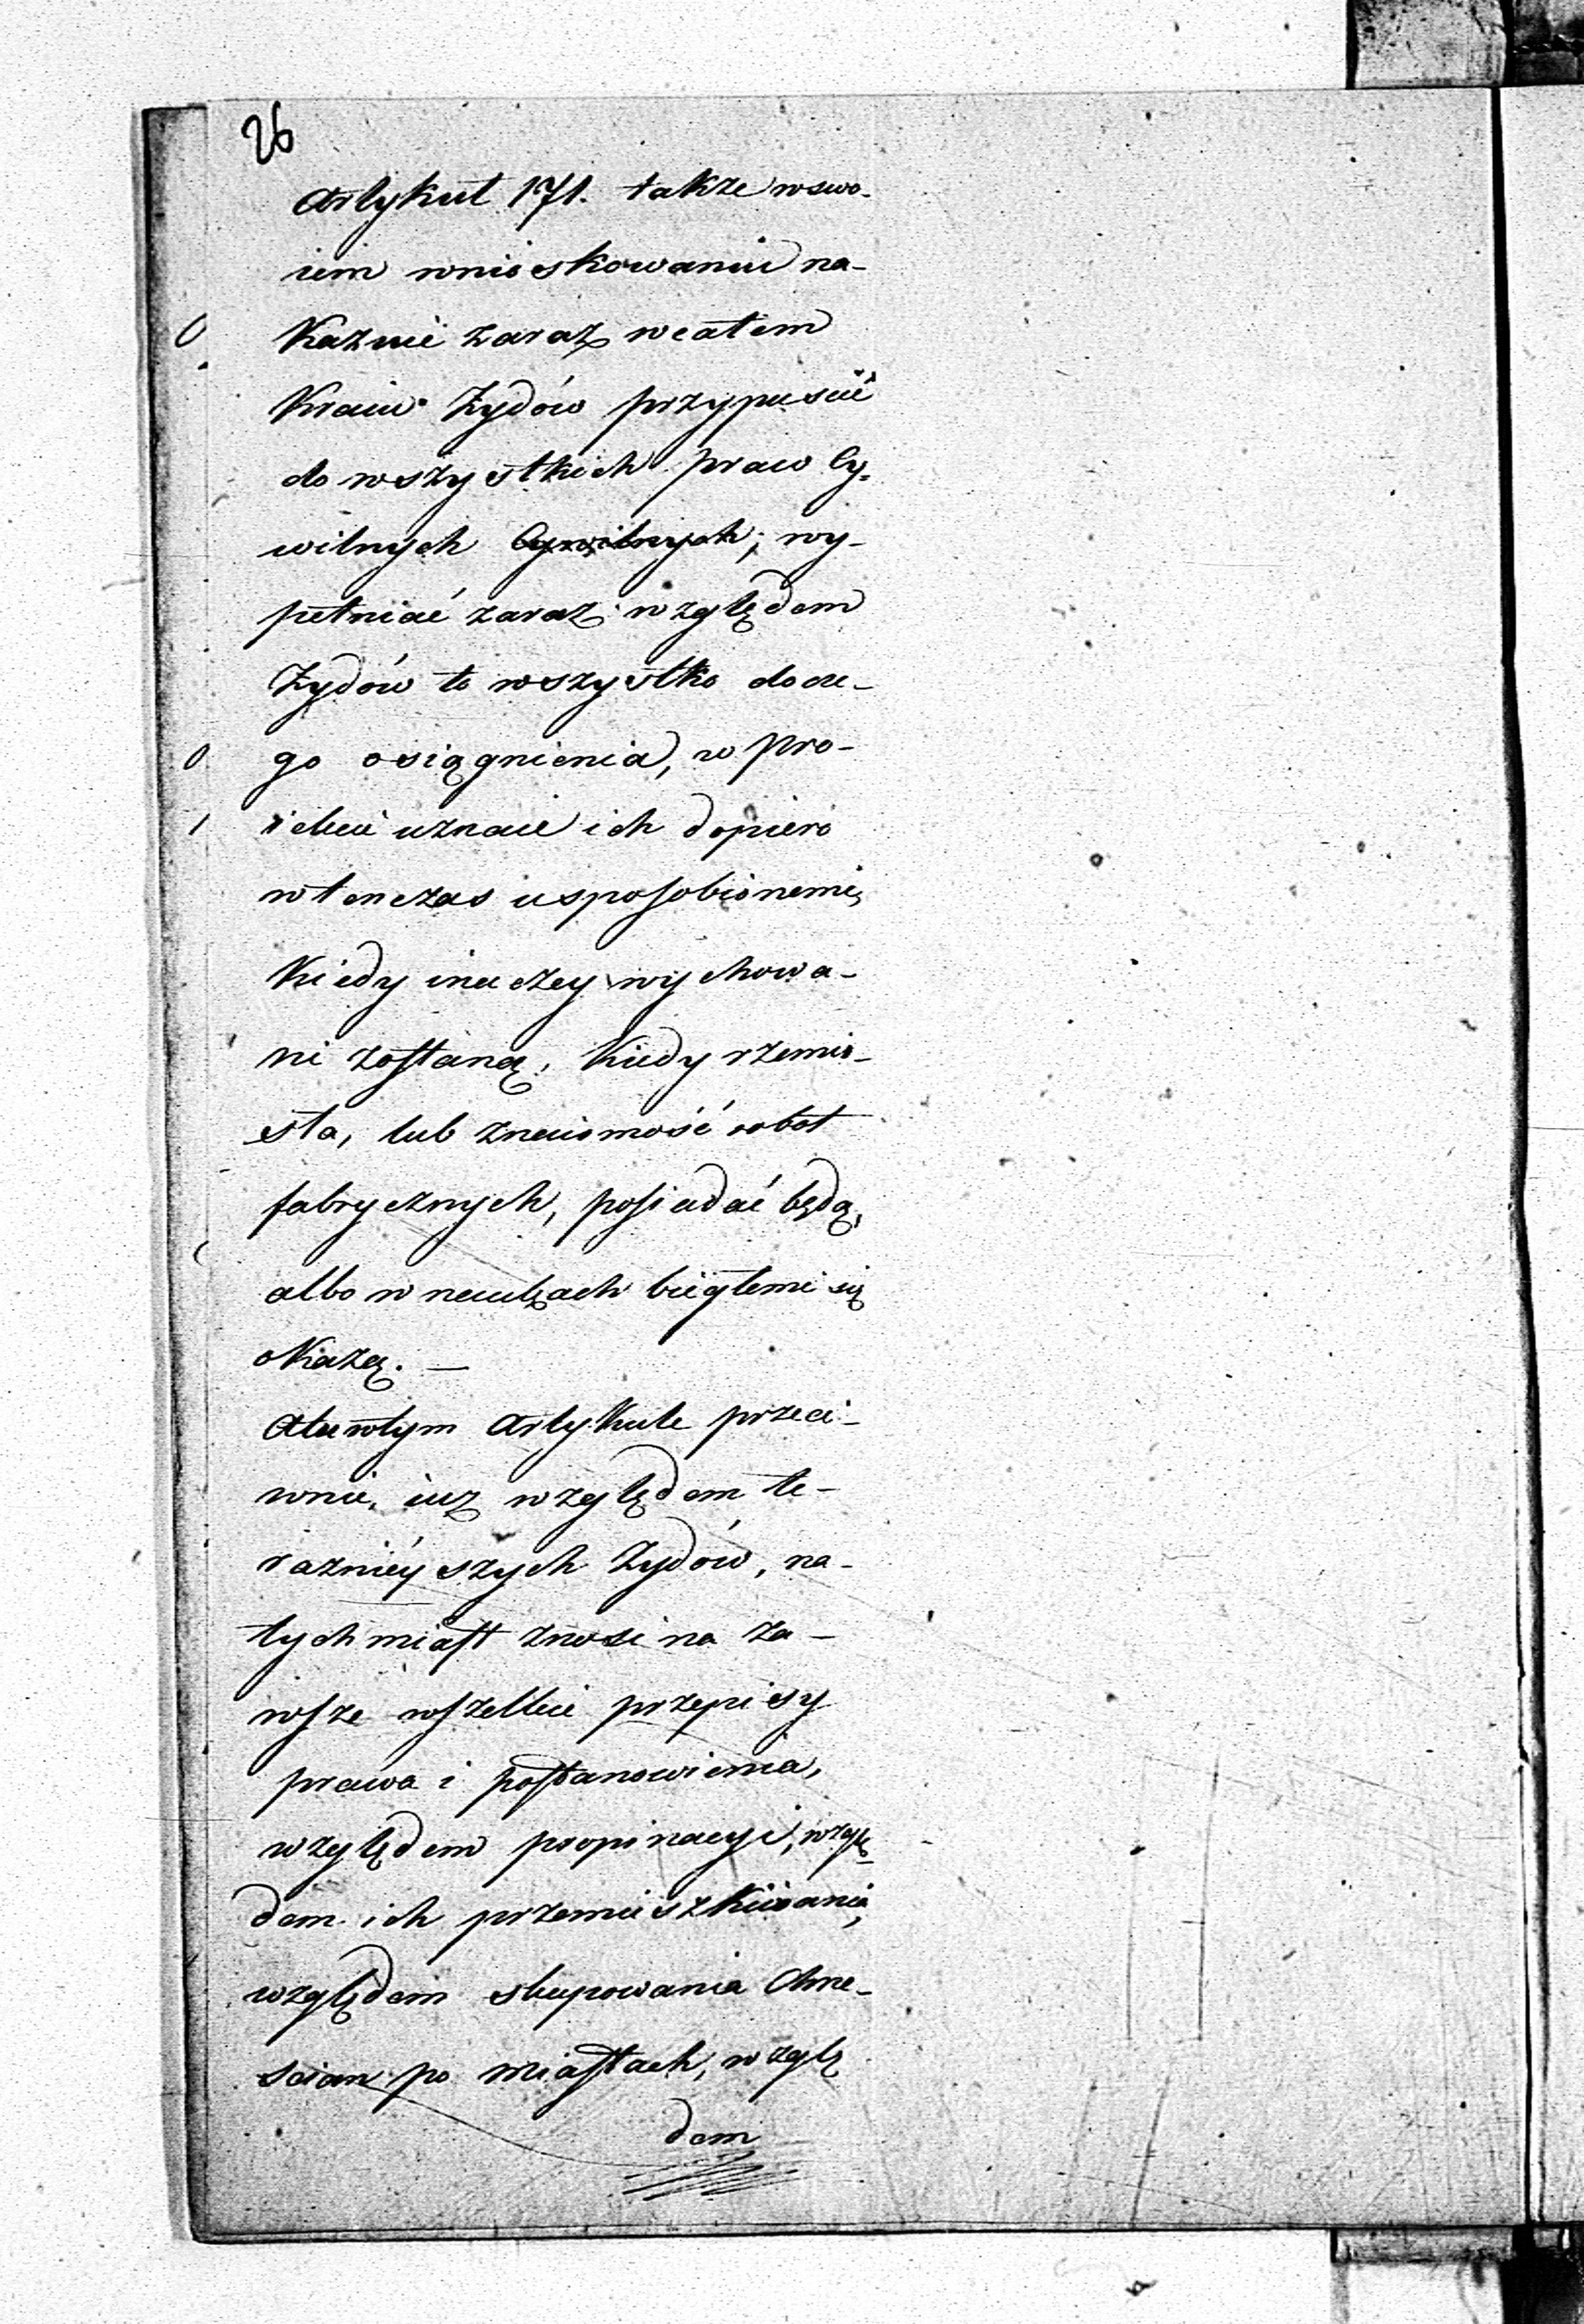 26
Artykuł 171. także w swo-
iem wnioskowaniu na-
Kaźuie zaraz w całem
Kraiu Żydów przypuścić
do wszystkich praw Cy-
wilnych Cywilnych; wy-
pełniać zaraz względem
Żydów to wszystko do cze-
go osiągnienia, w pro-
iekcie uznaie ich dopiero
wtenczas usposobionemi,
Kiedy inaczey wychowa-
ni zostaną, Kiedy rzemio-
sła, lub znaiomość robot
fabrycznych, posiadać będą,
albo w naukach biegłemi się
okażą. —
A tu w tym Artykule przeci-
wnie, iuż względem te-
raźnieyszych Żydów, na-
tychmiast znosi na za-
wsze wszelkie przepisy
prawa i postanowienia,
względem propinacyi, wzglę-
dem ich przemieszkiwania,
względem skupowania Chrze-
scian po miastach, wzglę
dem